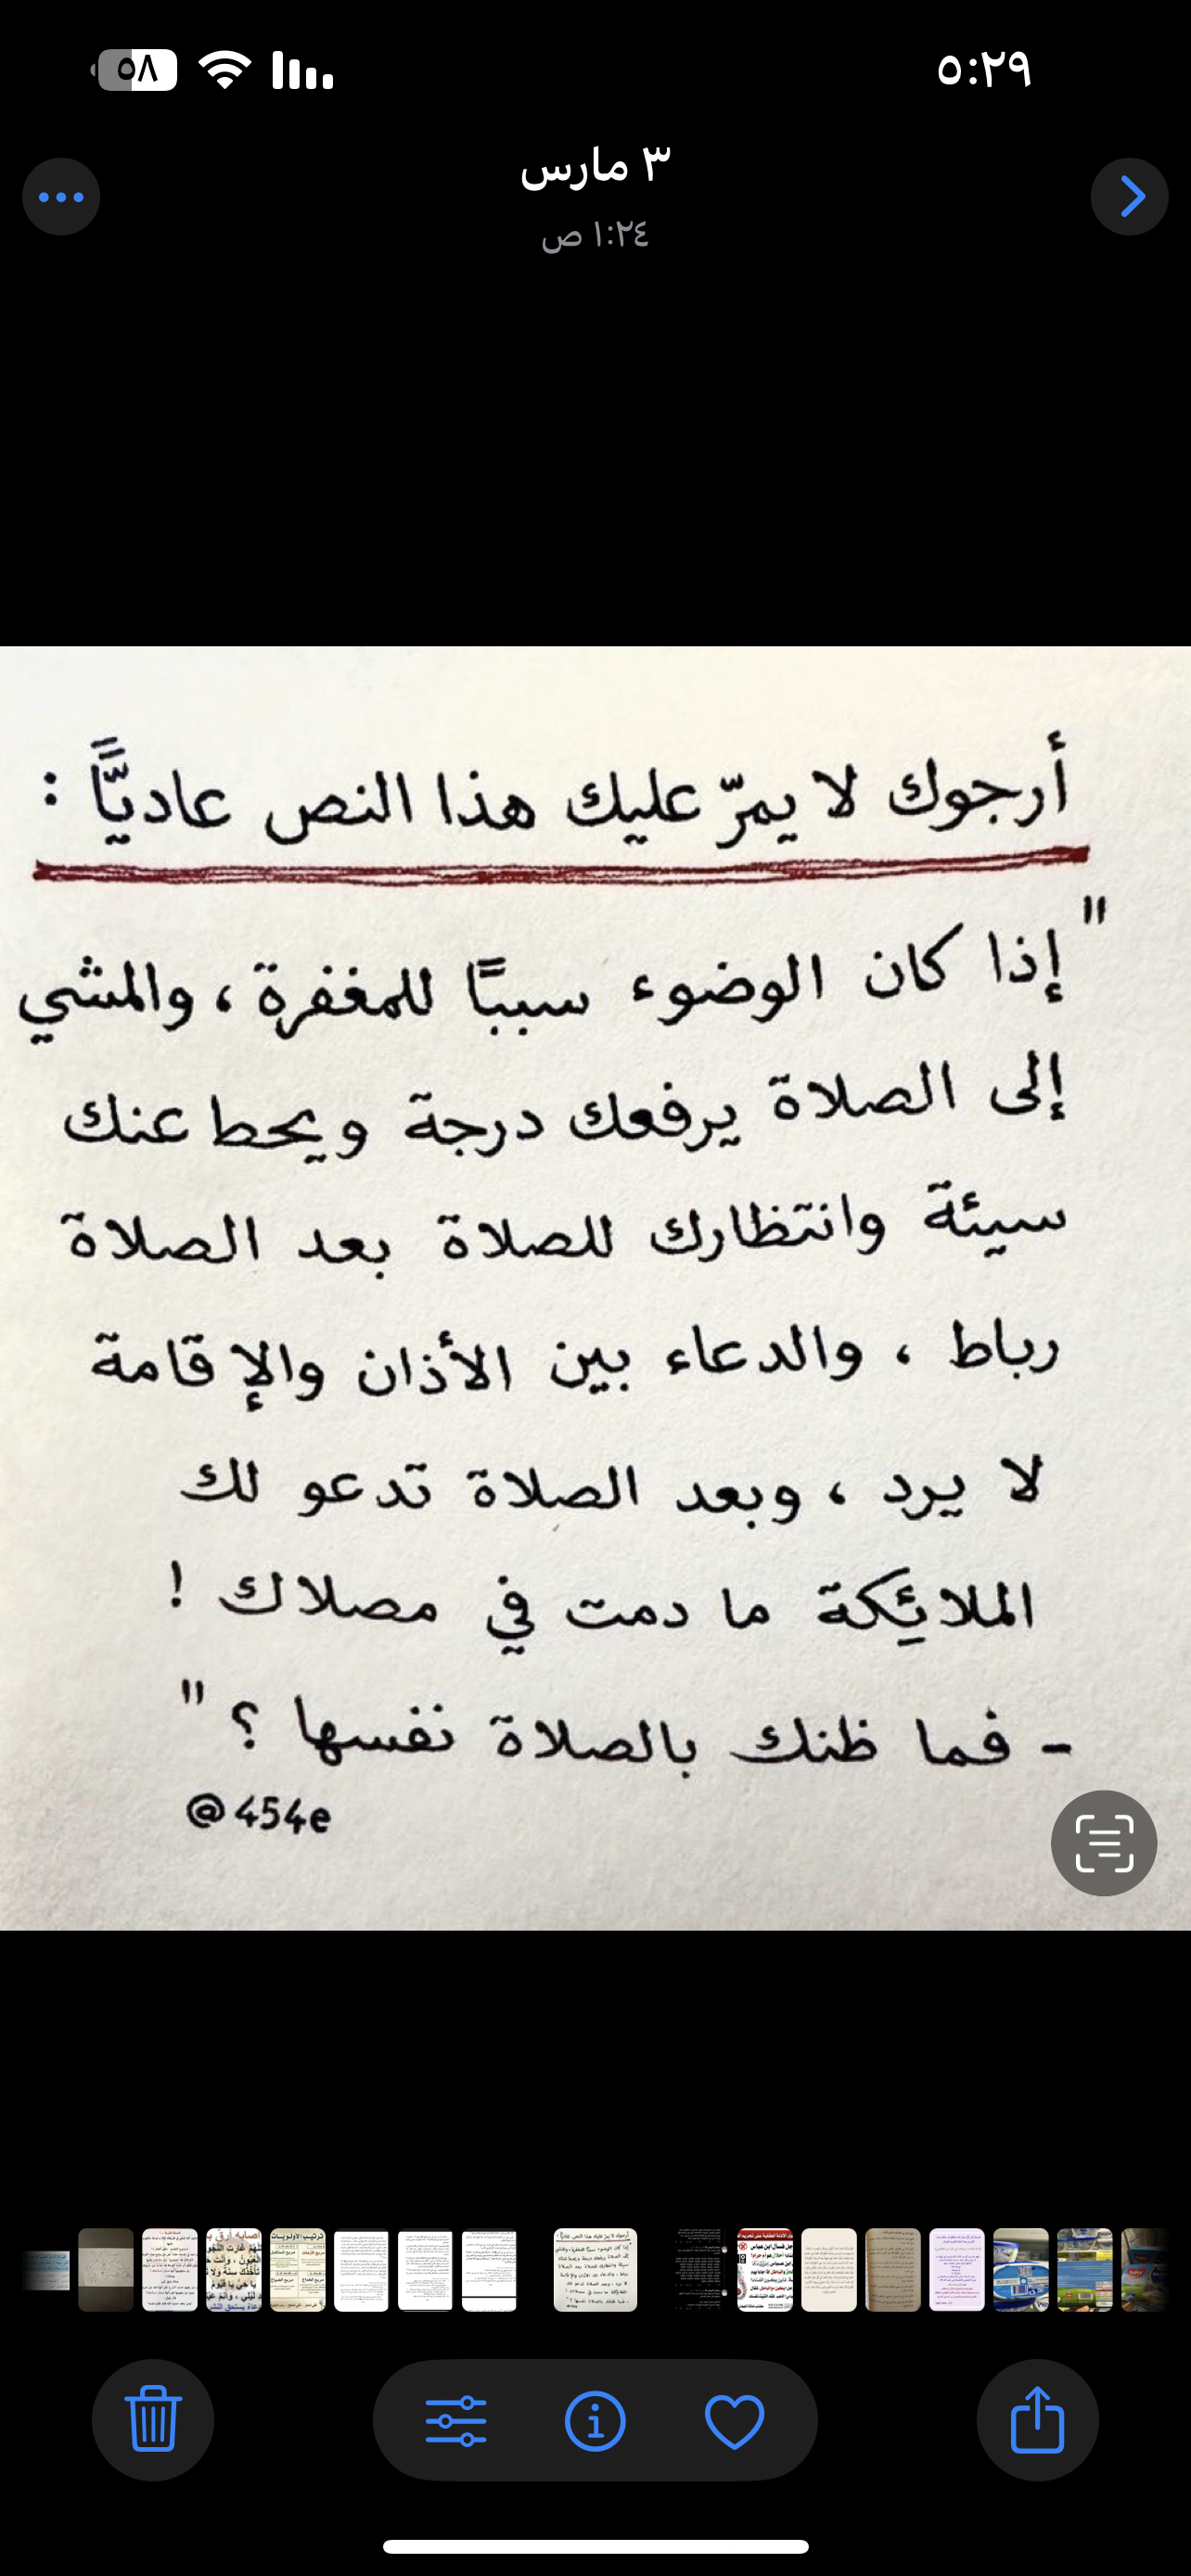 ٥:٢٩
٥٨
٣ مارس
١:٢٤ ص
أرجوك لا يمرّ عليك هذا النص عاديًّا :
" إذا كان الوضوء سببًا للمغفرة ، والمشي
إلى الصلاة يرفعك درجة ويحط عنك
سيئة وانتظارك للصلاة بعد الصلاة
رباط ، والدعاء بين الأذان والإقامة
لا يرد ، وبعد الصلاة تدعو لك
الملائِكة ما دمت في مصلاك !
- فما ظنك بالصلاة نفسها ؟ "
@454e